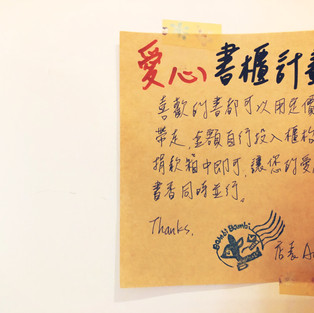 愛心書櫃計畫
喜歡的書都可以用定價
帶走，金額自行投入櫃枱
捐款箱中即可，讓您的愛
書香同時並行。
Thanks,
Bambi Bambi
店長 A